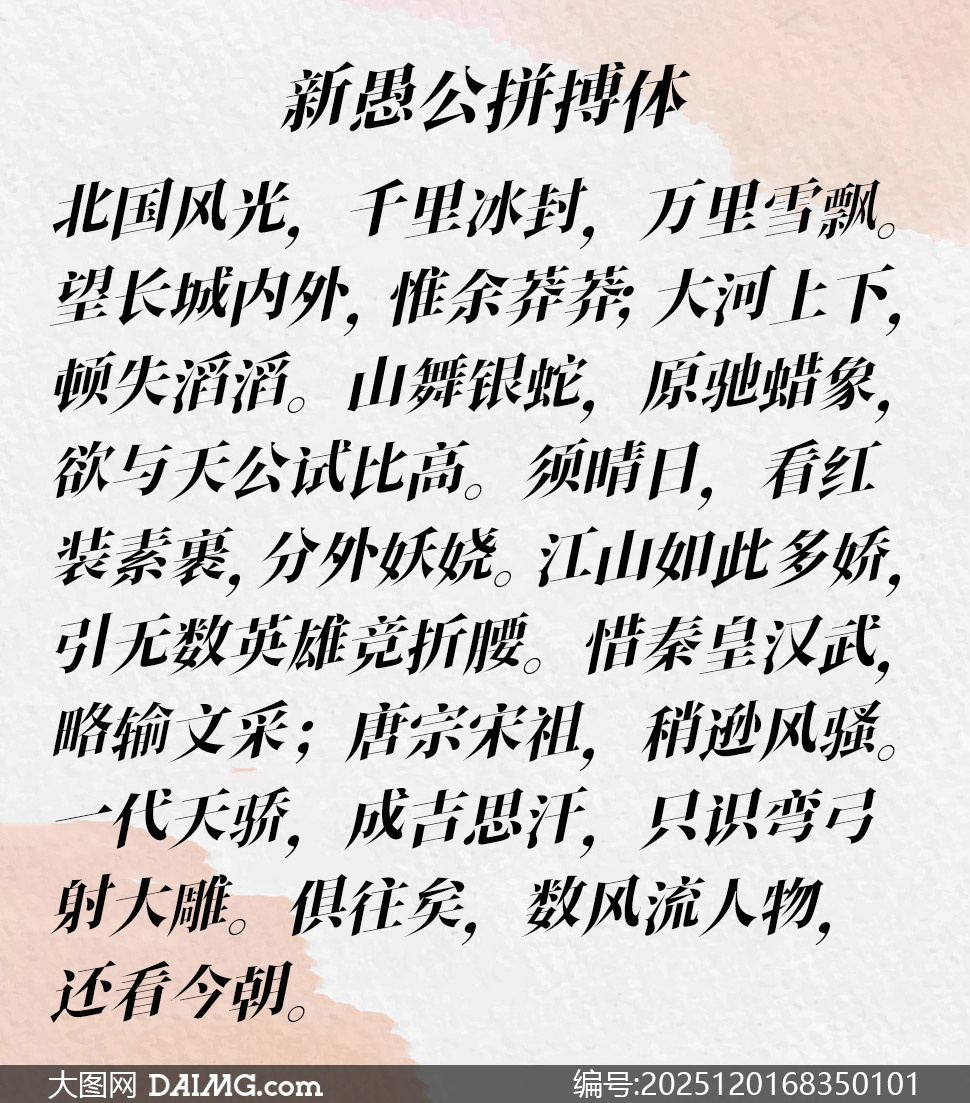 新愚公拼搏体
北国风光，千里冰封，万里雪飘。
望长城内外，惟余莽莽；大河上下，
顿失滔滔。山舞银蛇，原驰蜡象，
欲与天公试比高。须晴日，看红
装素裹，分外妖娆。江山如此多娇，
引无数英雄竞折腰。惜秦皇汉武，
略输文采；唐宗宋祖，稍逊风骚。
一代天骄，成吉思汗，只识弯弓
射大雕。俱往矣，数风流人物，
还看今朝。
大图网 DAIMG.com 编号:2025120168350101